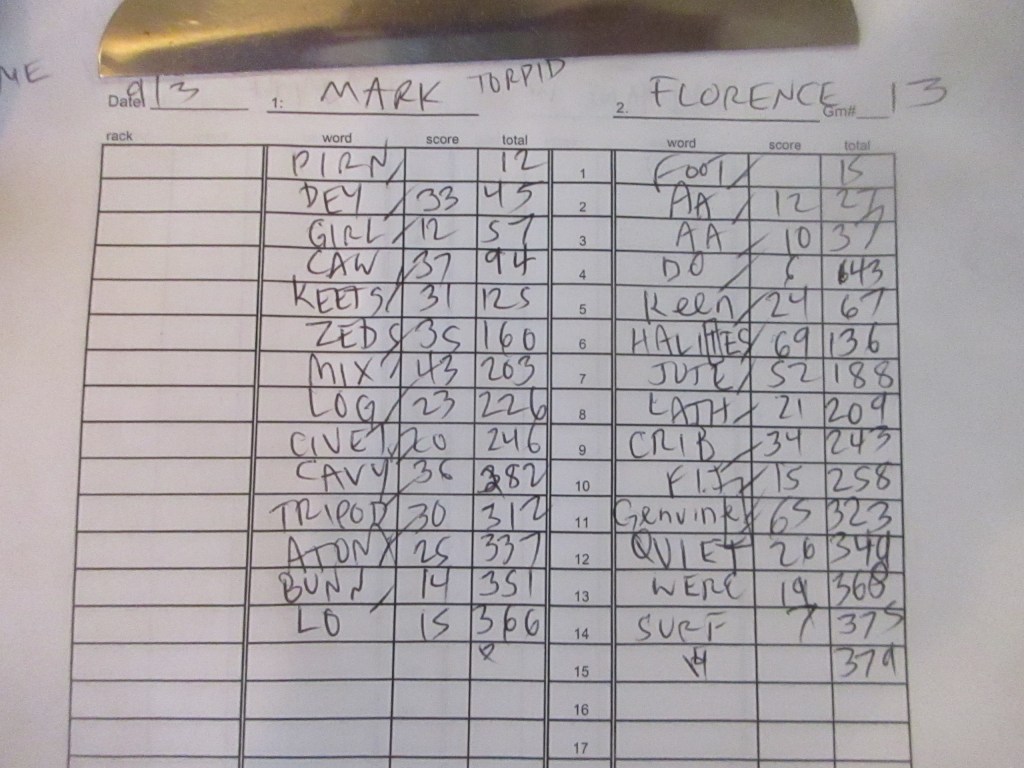 ME
Date 9/3 1: MARK TORPID 2. FLORENCE Gm# 13
rack word score total word score total
PIRN 12 1 FOOT 15
DEY 33 45 2 AA 12 27
GIRL 12 57 3 AA 10 37
CAW 37 94 4 DO 6 43
KEETS 31 125 5 Keen 24 67
ZEDS 35 160 6 HALITES 69 136
MIX 43 203 7 JUTE 52 188
LOG 23 226 8 LATH 21 209
CIVET 20 246 9 CRIB 34 243
CAVY 36 282 10 15 258
TRIPOD 30 312 11 65 323
ATONY 25 337 12 QUIET 26 349
BUNN 14 351 13 WERE 19 368
LO 15 366 14 SURF 7 375
15 379
16
17